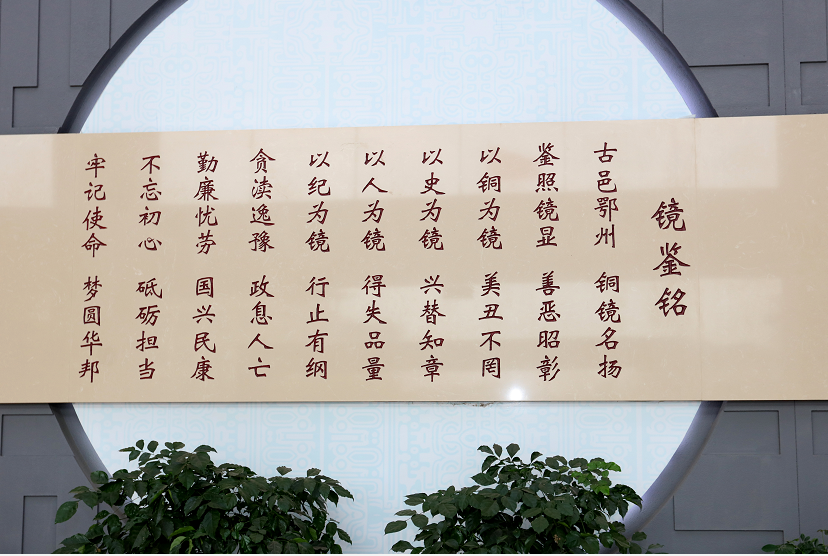 镜鉴铭
古邑鄂州 铜镜名扬
鉴照镜显 善恶昭彰
以铜为镜 美丑不罔
以史为镜 兴替知章
以人为镜 得失品量
以纪为镜 行止有纲
贪渎逸豫 政息人亡
勤廉忧劳 国兴民康
不忘初心 砥砺担当
牢记使命 梦圆华邦